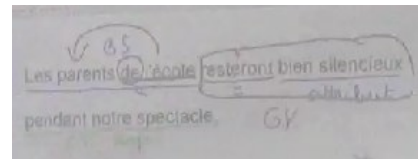 GS
Les parents de l'école resteront bien silencieux
attribut
pendant notre spectacle. GV